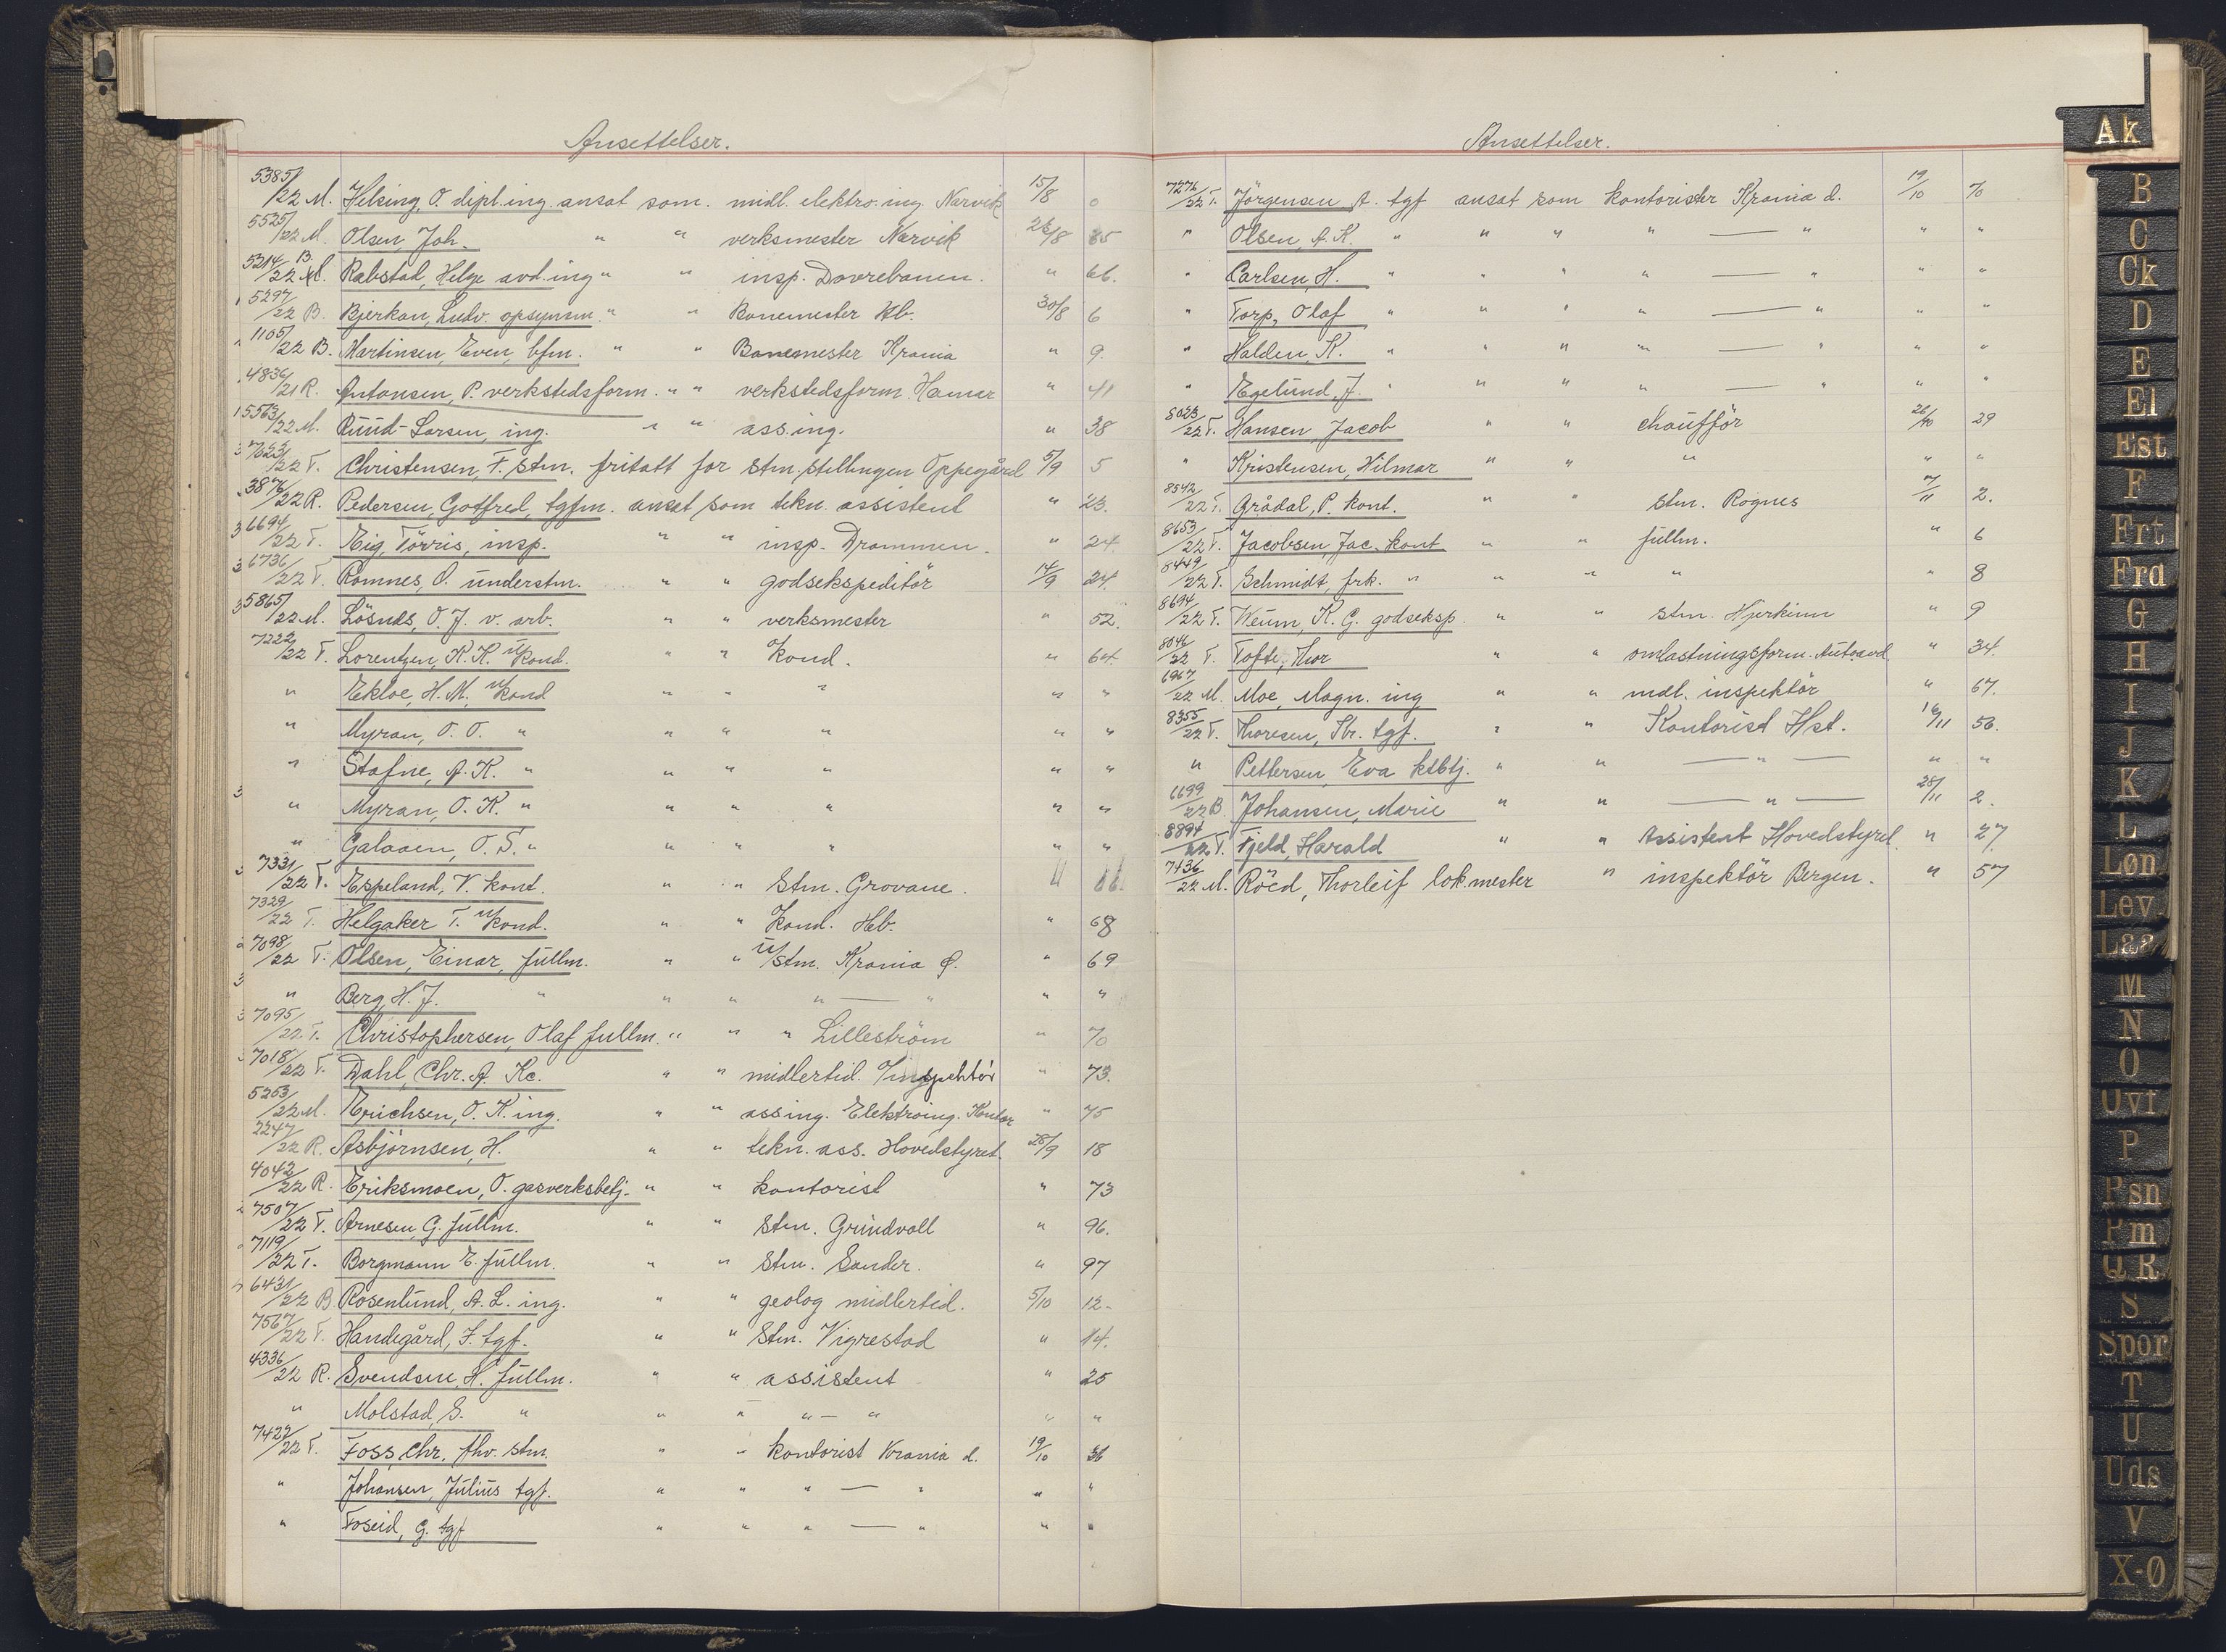 Ansettelser.
5385/22 M. Helsing, O. dipl.ing. ansat som midl. elektro.ing. Narvik 15/8 0
5525/22 M. Olsen, Joh. " " verksmester Narvik 26/8 85
5314/22 B. Rabstad, Helge avd.ing " " insp. Dovrebanen. " 66.
5297/22 B. Bjerkan, Ludv. opsynsm. " " Banemester Hb. 30/8 6
1105/22 B. Martinsen, Even, bfm. " " Banemester Krania " 9.
4836/21 R. Antonsen, P. verkstedsform. " " verkstedsform. Hamar " 41
5563/22 M. Ruud-Larsen, ing. " " ass.ing. " 38
7623/22 T. Christensen, F. stm. fritatt for stm.stillingen Oppegård 5/9 5
3876/22 R. Pedersen, Gotfred, tgfm. ansat som tekn. assistent " 23.
6694/22 T. Eig, Törris, insp. " " insp. Drammen. " 24.
6736/22 T. Romnes, O. understm. " " godsekspeditör 14/9 24.
5865/22 M. Lösnes, O. J. v. arb. " " verksmester " 52.
7222/22 T. Lorentzen, K. K. u/kond. " " Kond. " 64.
" Ekloe, H. M. u/kond " " " " "
" Myran, O. O. " " " " " "
" Stafne, A. K. " " " " " "
" Myran, O. K. " " " " " "
" Galaaen, O. S. " " " " " "
7331/22 T. Espeland, V. kont. " " Stm. Grovane. " 66.
7329/22 T. Helgaker T. u/kond. " " Kond. Hb. " 68
7098/22 T. Olsen, Einar, fullm. " " u/stm. Krania Ø. " 69
" Berg, H. J. " " " " — " " "
7095/22 T. Christophersen, Olaf fullm. " " " Lilleström " 70
7018/22 T. Dahl, Chr. A. Kc. " " midlertid. Inspektör " 73.
5253/22 M. Erichsen, O. K. ing. " " ass ing. Elektroing. Kontor " 75
2247/22 R. Asbjörnsen, H. " " tekn. ass. Hovedstyret. 28/9 18
4042/22 R. Eriksmoen, O. gasverksbetj. " " kontorist " 73
7507/22 T. Arnesen, G. fullm. " " Stm. Grindvoll " 96.
7119/22 T. Borgmann E. fullm. " " Stm. Sander. " 97
6431/22 B. Rosenlund, A. L. ing. " " geolog midlertid. 5/10 12.
7567/22 T. Handegård, F. tgf. " " Stm. Vigrestad " 14.
4336/22 R. Svendsen, H. fullm. " " assistent " 25
" Molstad, S. " " " " — " " "
7427/22 T. Foss, Chr. fhv. stm. " " kontorist Krania d. 19/10 36
" Johansen, Julius tgf. " " " — " " "
" Foseid, G. tgf " " " — " " "
Ansettelser.
7276/22 T. Jörgensen A. tgf ansat som kontorister Krania d. 19/10 70
" Olsen, A. K. " " " " — " " "
" Carlsen, H. " " " " — " " "
" Torp, Olaf " " " " — " " "
" Halden, K. " " " " — " " "
" Egelund, J. " " " " — " " "
8023/22 T. Hansen, Jacob " " chaufför 26/10 29
" Kristensen, Hilmar " " " " "
8542/22 T. Grådal, P. kont. " " stm. Rognes 7/11 2.
8653/22 T. Jacobsen, Jac. kont " " fullm. " 6
8449/22 T. Schmidt, frk. " " " " " 8
8694/22 T. Weum, K. G. godseksp. " " stm. Hjerkinn " 9
8046/22 T. Tofte, Thor " " omlastningsform. Autoavd " 34.
6967/22 M. Moe, Magn. ing " " mdl. inspektör " 67.
8355/22 T. Thoresen, Thr. tgf. " " Kontorist Hst. 16/11 56.
" Pettersen, Eva ktbtj. " " — " — " "
6699/22 B Johansen, Marie " " — " — 28/11 2.
8894/22 T. Fjeld, Harald " " Assistent Hovedstyret. " 27
7436/22 M. Röed, Thorleif lok.mester " inspektör Bergen. " 57
Ak
B
C
Ck
D
E
El
Est
F
Frt
Frd
G
H
I
J
K
L
Løn
Lev.
Laa
M
N
O
Ovf
P
Psn
Pm
Q R
S
Spor
T
U
Uds
V
X-Ø